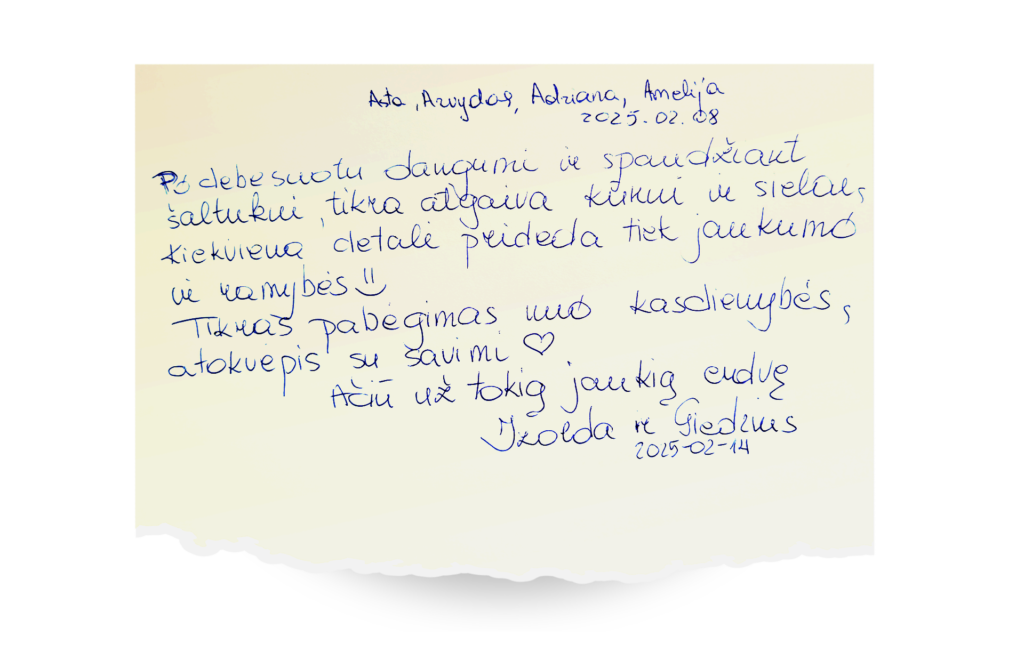 Asta, Arvydas, Adriana, Amelija
2025.02.08
Po debesuotu dangumi ir spaudžiant
šaltukui, tikra atgaiva kūnui ir sielai,
kiekviena detalė prideda tiek jaukumo
ir ramybės
Tikras pabėgimas nuo kasdienybės,
atokvėpis su savimi ♡
Ačiū už tokią jaukią erdvę
Izolda ir Giedrius
2025-02-14